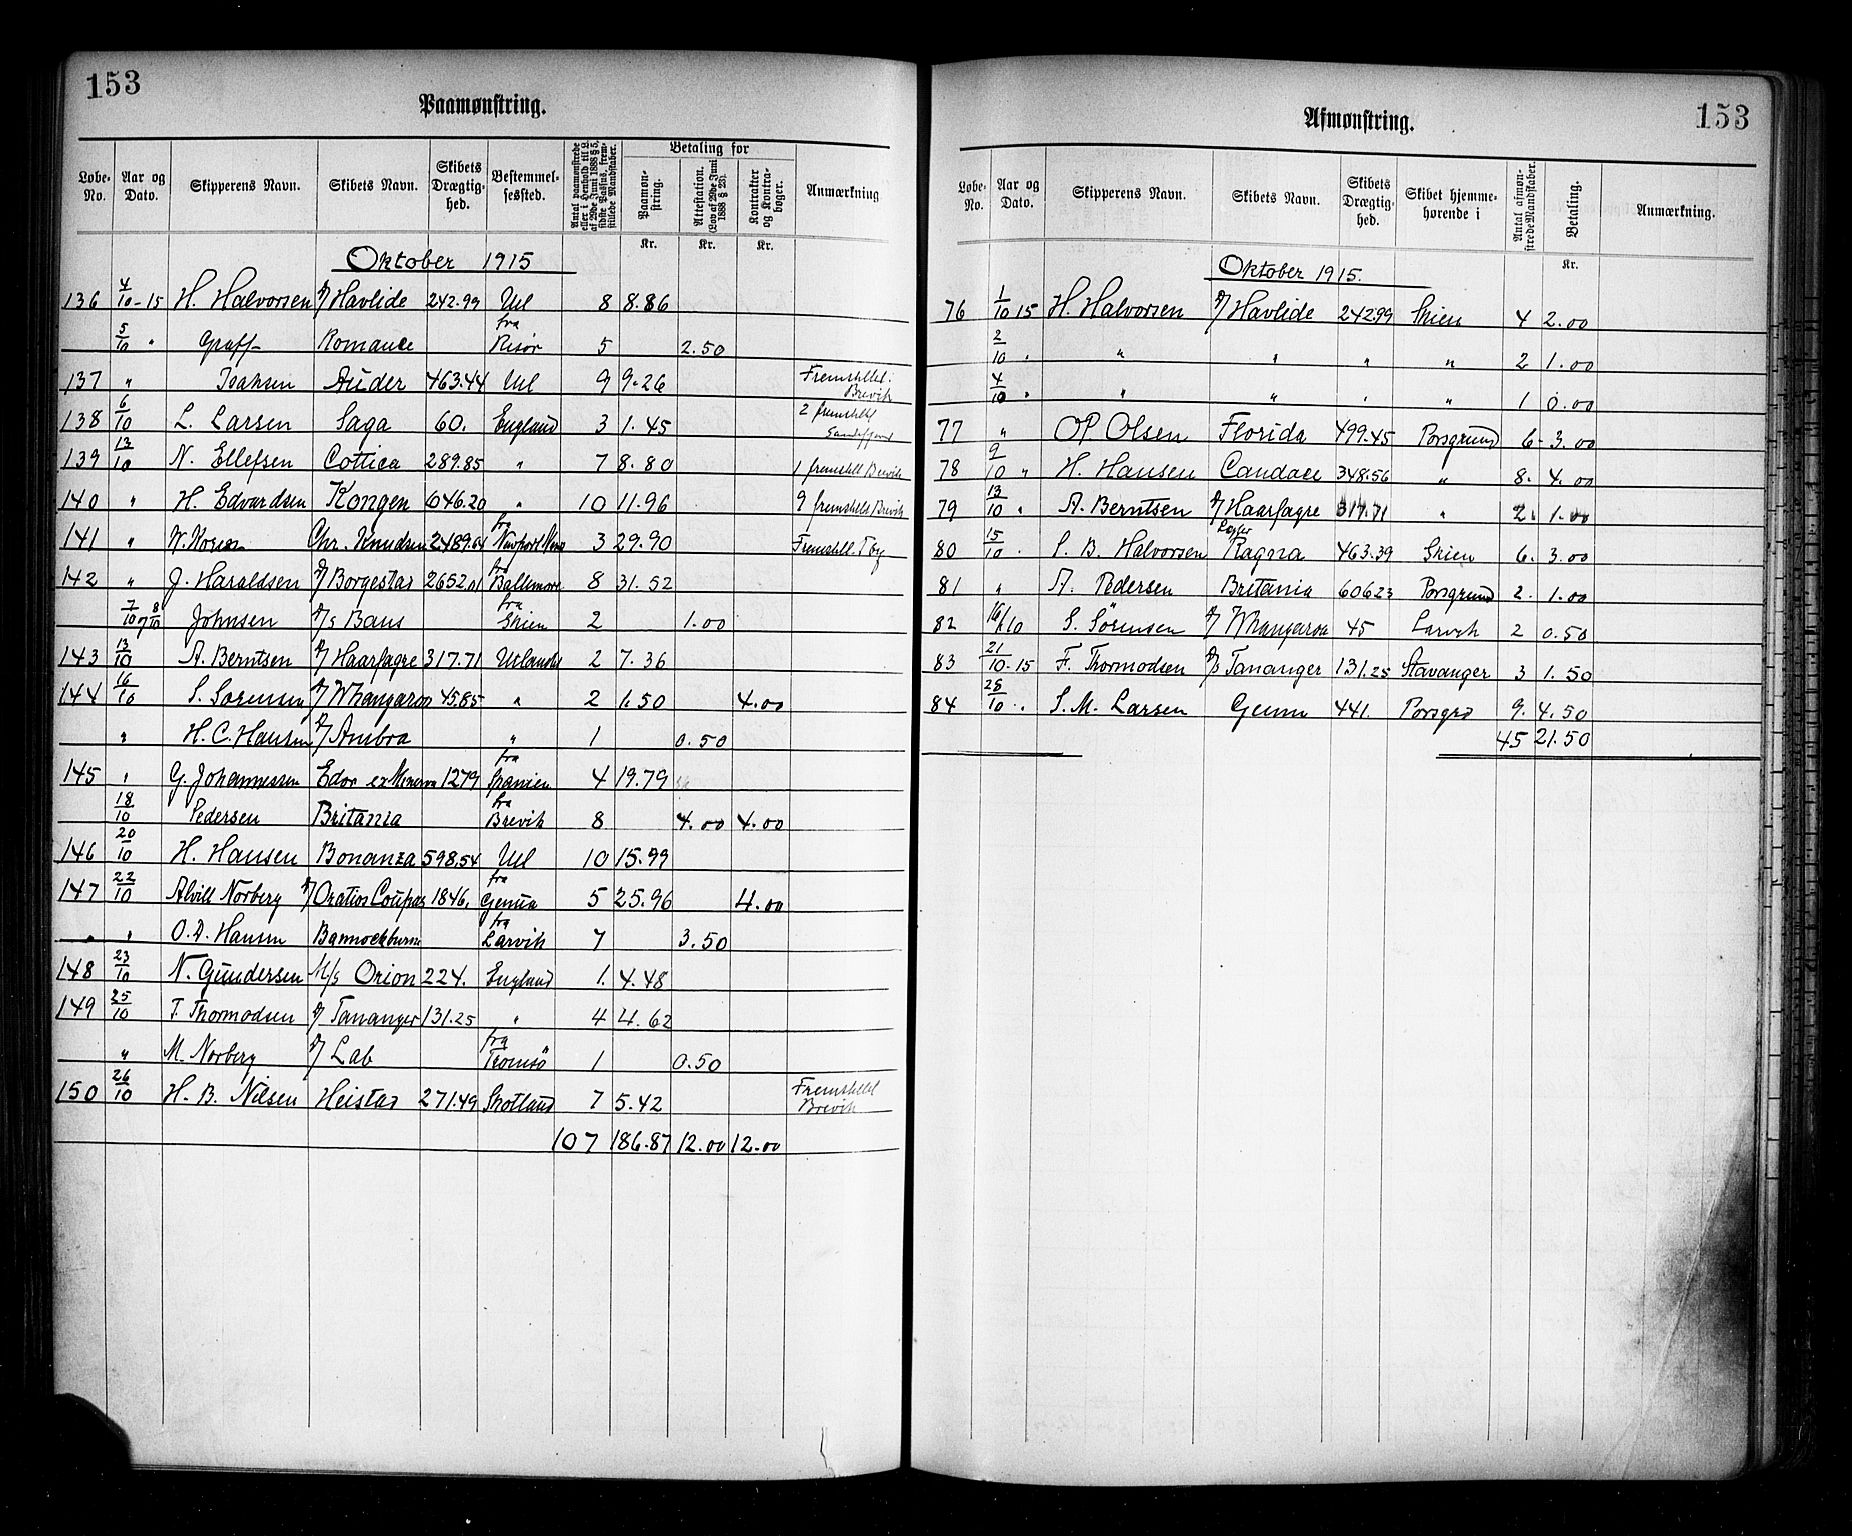 153
Paamønstring.
Løbe-No. | Aar og Dato. | Skipperens Navn. | Skibets Navn. | Skibets Drægtig-hed. | Bestemmel-sessted. | Antal paamønstrede eller i Henhold til L. af 29de Juni 1888 § 5, sidste Passus, frem-stillede Mandskaber. | Betaling for | Paamøn-string. Kr. | Attestation. (Lov af 29de Juni 1888 § 25). Kr. | Kontrakter og Kontra-bøger. Kr. | Anmærkning
Oktober 1915
136 4/10-15 H. Halvorsen Havlide 242.99 Utl 8 8.86
5/10 " Graff Romance fra Risør 5 2.50
137 " Isaksen Auder 463.44 Utl 9 9.26 Fremstillet i Brevik
138 6/10 L. Larsen Saga 60. England 3 1.45 2 fremstillt
139 13/10 N. Ellefsen Cottica 289.85 " 7 8.80 1 fremstill Brevik
140 " H. Edvardsen Kongen 646.20 " 10 11.96 9 fremstillt Brevik
141 " Chr. Knudsen 2489.64 fra 3 29.90 Fremstill.
142 " J. Haraldsen Borgestad 2652.01 fra Baltimore 8 31.52
7/10 8/10 Johnsen M/s Bans fra Skien 2 1.00
143 13/10 A. Berntsen Haarfagre 317.71 Utlandet 2 7.36
144 16/10 S. Sørensen Whangaroa 45.85 " 2 1.50 4.00
" H. C. Hansen Ambra " 1 0.50
145 " G. Johannessen Edor ex Minerva 1279 fra Spanien 4 19.79
18/10 Pedersen Britania fra Brevik 8 4.00 4.00
146 20/10 H. Hansen Bonanza 598.54 Utl 10 15.99
147 22/10 Alvill Norberg Oratios Coupas 1846. fra Genua 5 25.96 4.00
" " O. A. Hansen Bannockburn fra Larvik 7 3.50
148 23/10 N. Gundersen M/s Orion 224. England 1. 4.48
149 25/10 T. Thormodsen Tananger 131.25 " 4 4.62
" M. Norberg Lab fra Tromsö 1 0.50
150 26/10 H. B. Nilsen Heistad 271.49 Skotland 7 5.42 Fremstillet Brevik
107 186.87 12.00 12.00
153
Afmønstring.
Løbe-No. | Aar og Dato. | Skipperens Navn. | Skibets Navn. | Skibets Drægtig-hed. | Skibet hjemme-hørende i | Antal afmøn-strede Mandskaber. | Betaling. Kr. | Anmærkning.
Oktober 1915.
76 1/10 15 H. Halvorsen Havlide 242.99 Skien 4 2.00
2/10 " " " " " 2 1.00
4/10 " " " " " 1 0.00
77 " O P Olsen Florida 499.45 Porsgrund 6- 3.00
78 9/10 " H. Hansen Candace 348.56 " 8. 4.00
79 13/10 " A. Berntsen Haarfagre 317.71 " 2. 1.00
80 15/10 " S. B. Halvorsen Ragna 463.39 Skien 6. 3.00
81 " A. Pedersen Britania 606 23 Porsgrund 2. 1.00
82 16/10 S. Sörensen Whangaroa 45 Larvik 2 0.50
83 21/10-15 F. Thormodsen Tananger 131.25 Stavanger 3 1.50
84 28/10 " S. M. Larsen Genn 441. Porsgrd 9. 4.50
45 21.50